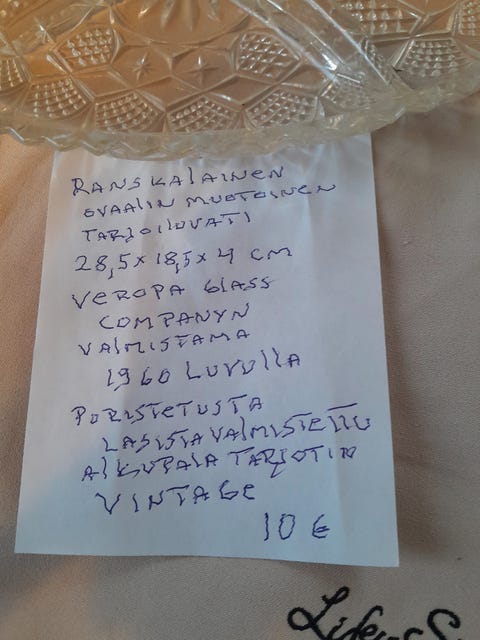 RANSKALAINEN
OVAALIN MUOTOINEN
TARJOILUVATI
28,5x18,5x4 CM
VEROPA GLASS
COMPANYN
VALMISTAMA
1960 LUVULLA
PURISTETUSTA
LASISTA VALMISTETTU
ALKUPALA TARJOTIN
VINTAGE
10 €